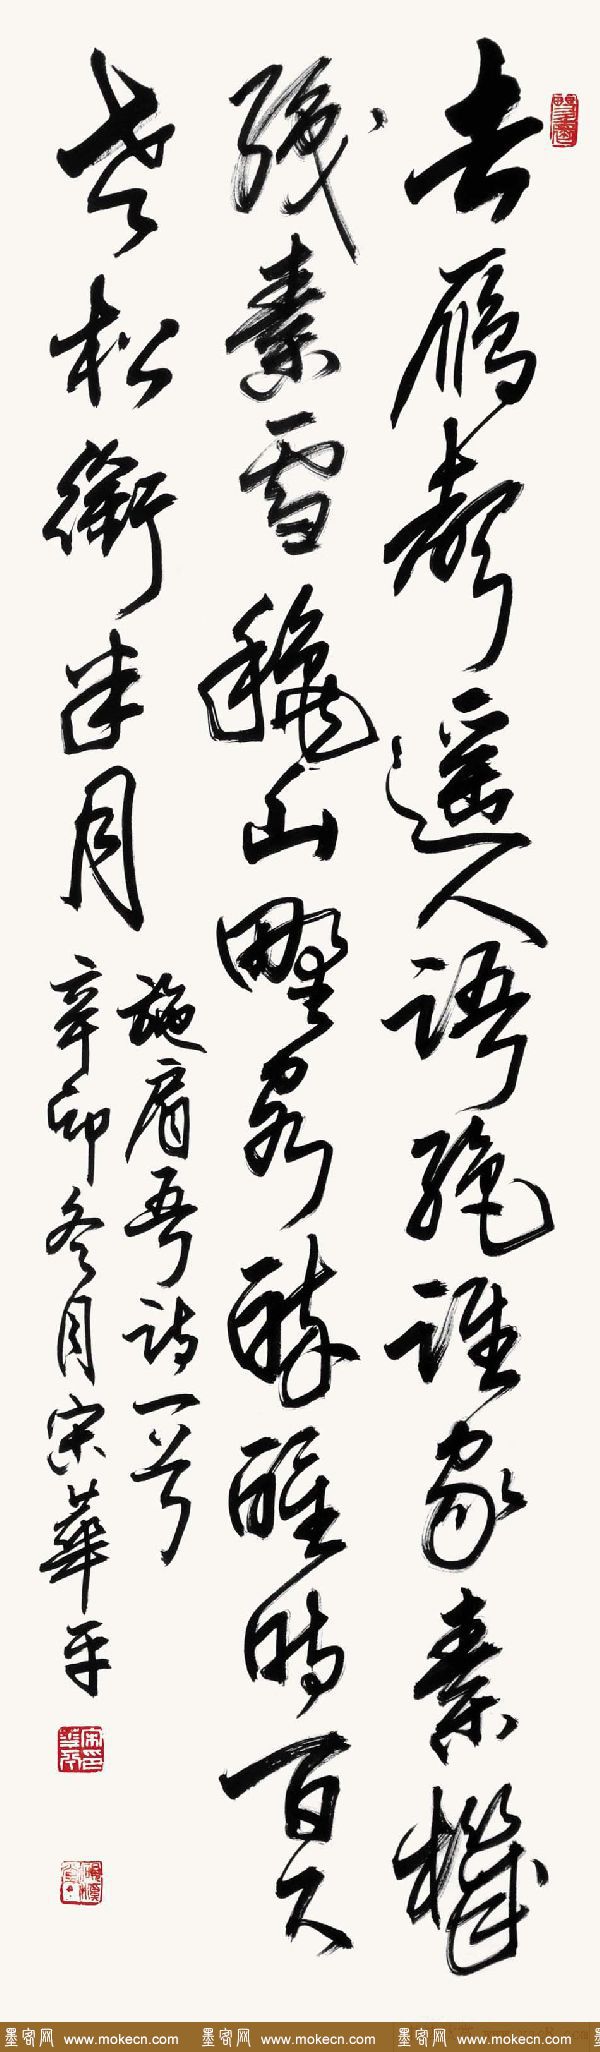 去鴈聲遥人語絕誰家素機
織素雪穐山野客醉醒時百尺
老松銜半月
施肩吾詩一首
辛卯冬月宋華平
墨客网 www.mokecn.com 墨客网 www.mokecn.com 墨客网 www.mokecn.com